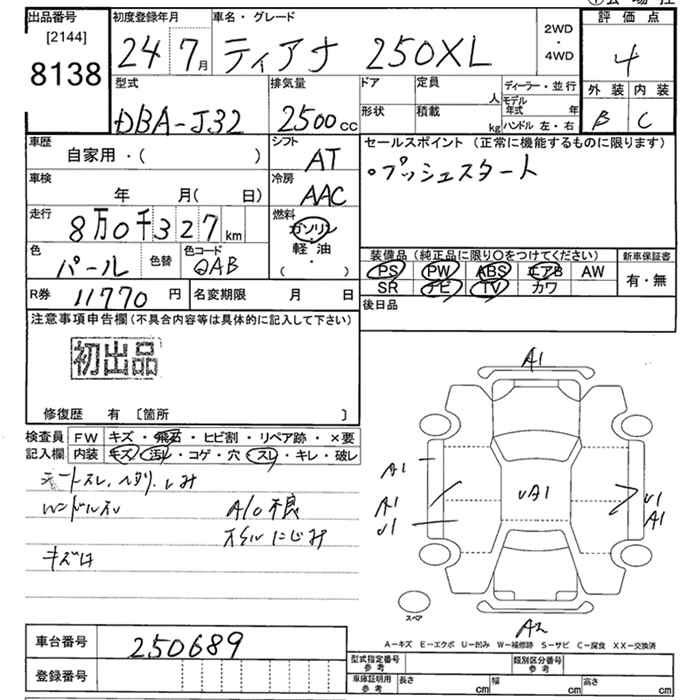 出品番号
[2144]
8138
初度登録年月
24 7月
車名・グレード
ティアナ 250XL
2WD
・
4WD
評価点
4
外装 内装
B C
型式
DBA-J32
排気量
2500cc
ドア
形状
定員 人
積載 kg
ディーラー・並行
モデル年式 年
ハンドル 左・右
車歴
自家用・( )
シフト
AT
車検
年 月( 日)
冷房
AAC
走行
8万0千327km
燃料
ガソリン
軽・油
・( )
色
パール
色替
色コード
QAB
R券 11770円
名変期限 月 日
セールスポイント (正常に機能するものに限ります)
○プッシュスタート
装備品 (純正品に限り○をつけてください)
PS PW ABS エアB AW
SR ナビ TV カワ
新車保証書
有・無
後日品
注意事項申告欄(不具合内容等は具体的に記入して下さい)
初出品
修復歴 有 〔箇所 〕
検査員記入欄
FW キズ・飛石・ヒビ割・リペア跡・×要
内装 キズ・汚レ・コゲ・穴・スレ・キレ・破レ
A/O不良
オイルにじみ
キズ
A1
A1
A1
U1
UA1
U1
A1
A2
スペア
A－キズ E－エクボ U－凹み W－補修跡 S－サビ C－腐食 XX－交換済
車台番号 250689
登録番号
型式指定番号 参考
類別区分番号 参考
車庫証明用 参考
長さ cm 幅 cm 高さ cm